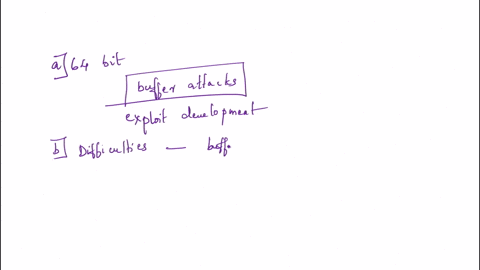 a] 64 bit
buffer attacks
exploit development
b] Difficulties — buff